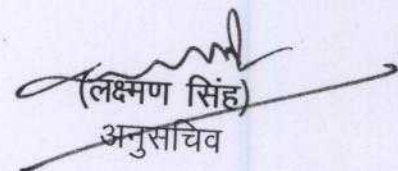 (लक्ष्मण सिंह)
अनुसचिव